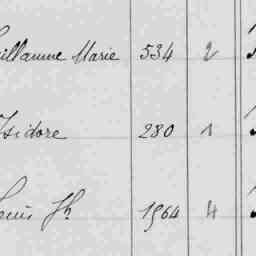 uillaume Marie 534 2
Isidore 280 1
Louis Jh 1964 4